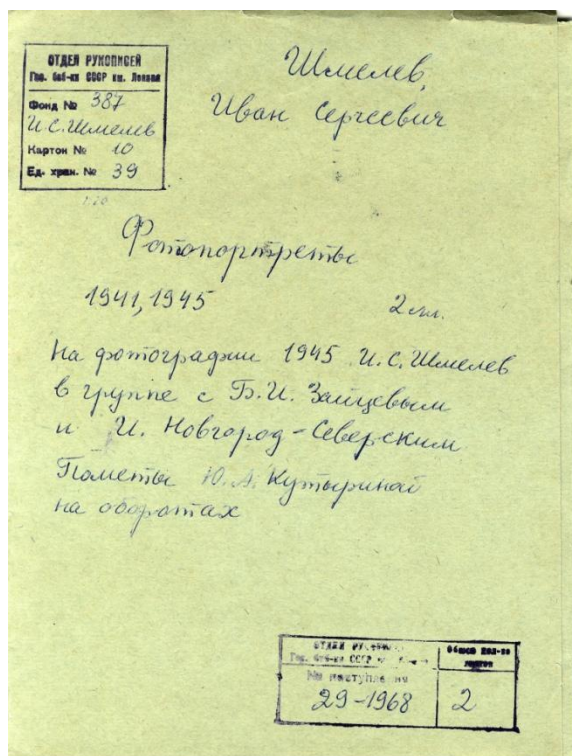 ОТДЕЛ РУКОПИСЕЙ
Гос. биб-ки СССР им. Ленина
Фонд № 387
И.С. Шмелев
Картон № 10
Ед. хран. № 39
Шмелев,
Иван Сергеевич
Фотопортреты
1941, 1945 2 лл.
На фотографии 1945 И.С. Шмелев
в группе с Б.И. Зайцевым
и И. Новгород-Северским
Пометы Ю.А. Кутыриной
на оборотах
ОТДЕЛ
Гос. биб-ки СССР
№ поступления
29-1968
Общее кол-во
листов
2